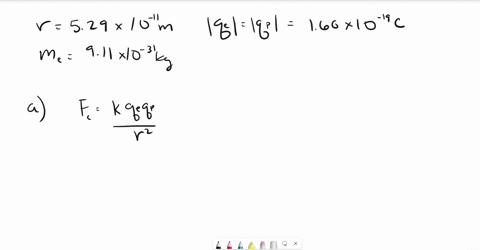 r = 5.29 × 10⁻¹¹ m   |qₑ| = |qₚ| = 1.60 × 10⁻¹⁹ C
mₑ = 9.11 × 10⁻³¹ kg
a) F꜀ = k qₑ qₚ / r²